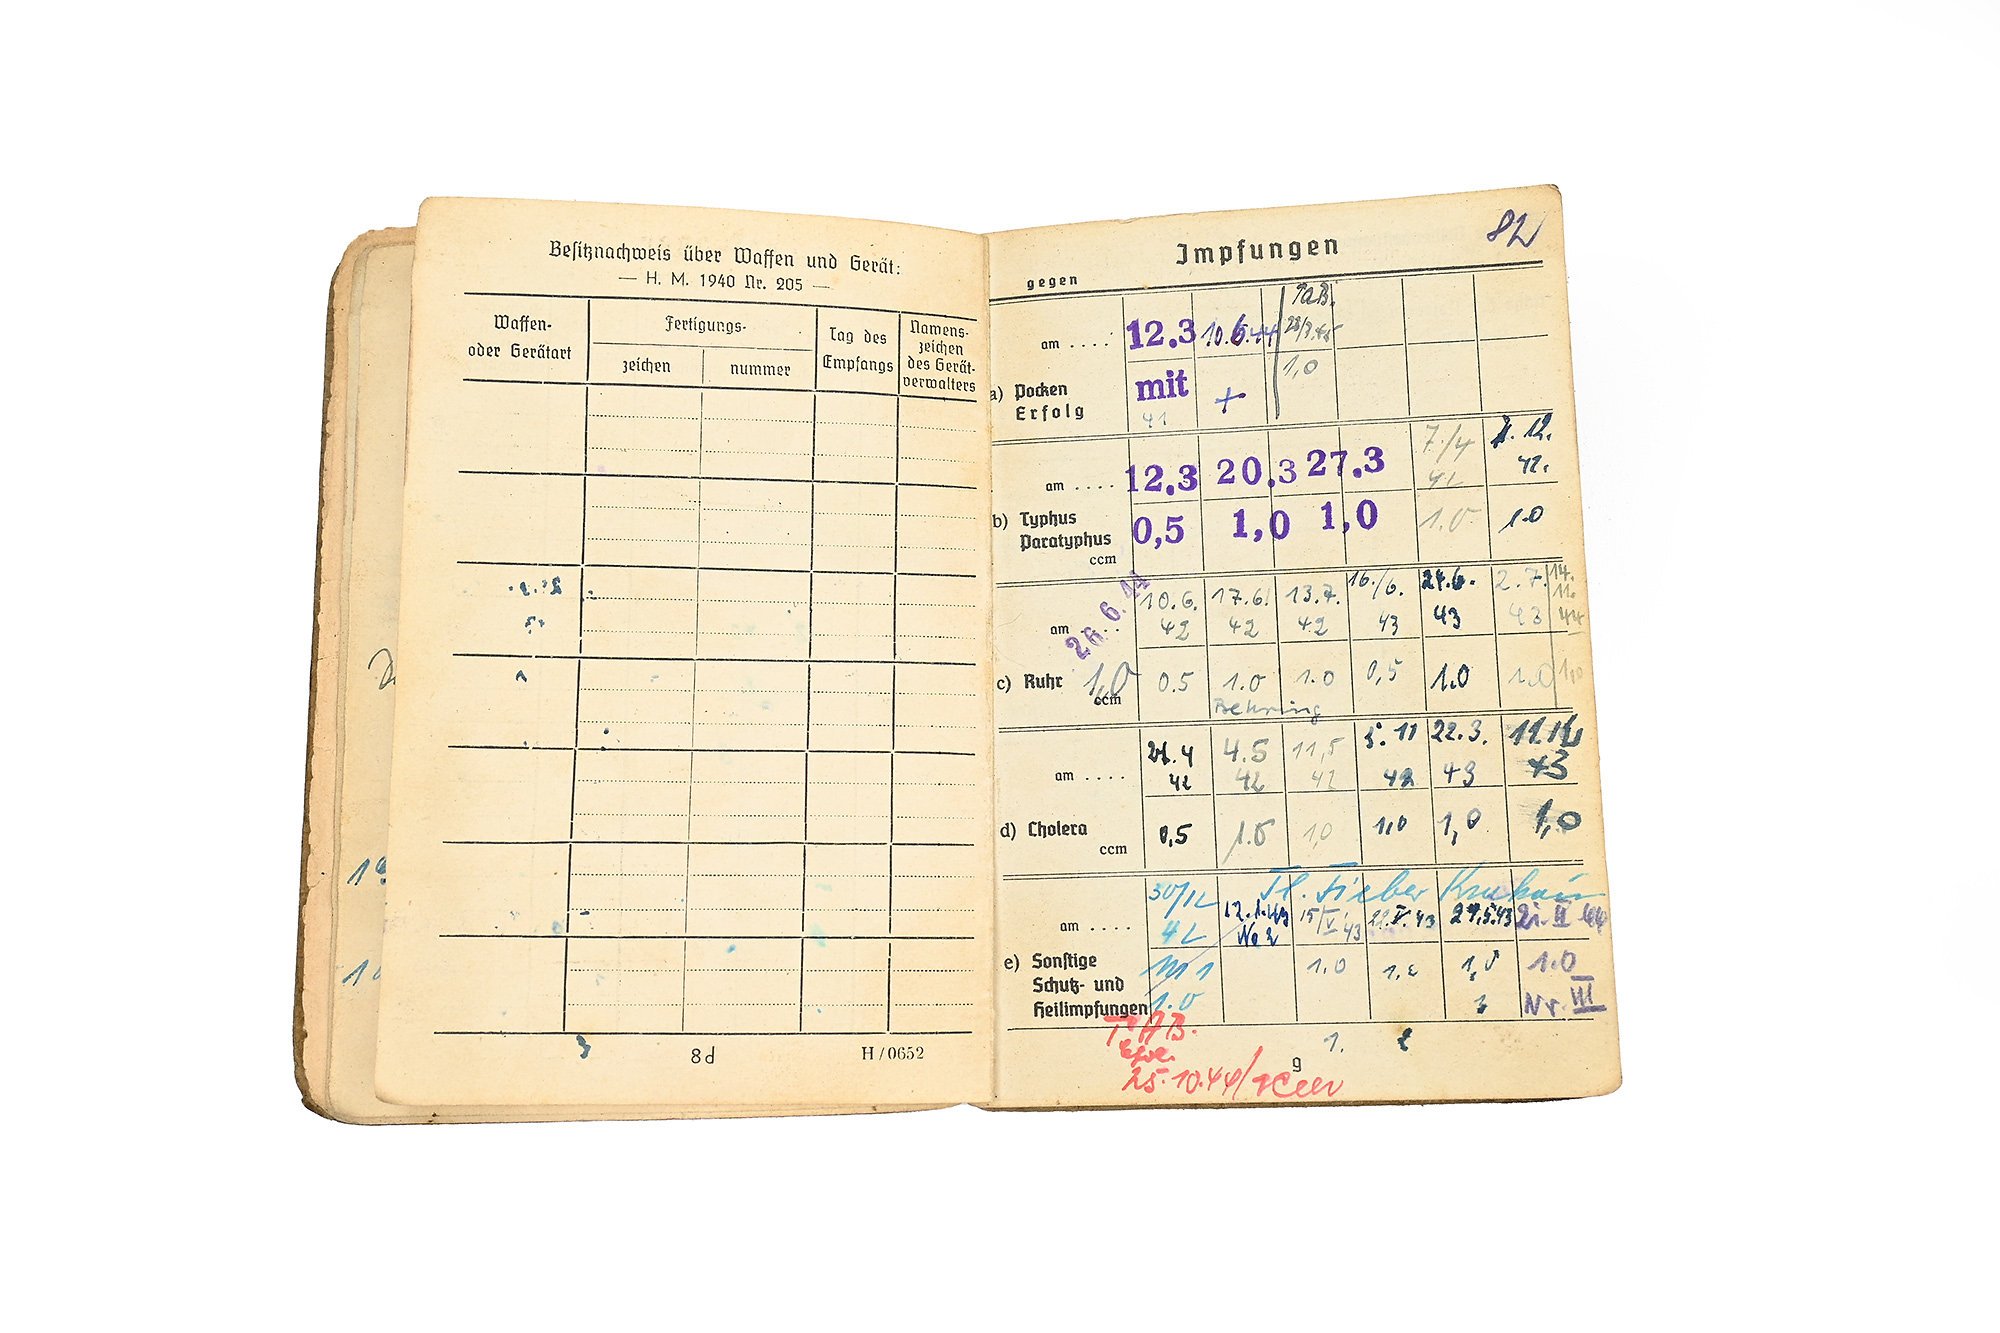 Besitznachweis über Waffen und Gerät:
— H. M. 1940 Nr. 205 —
Waffen-
oder Gerätart
Fertigungs-
zeichen
nummer
Tag des
Empfangs
Namens-
zeichen
des Gerät-
verwalters
8d
H/0652
82
Impfungen
gegen
TAB.
am .... 12.3 10.6.44
1,0
a) Pocken
Erfolg
mit +
41
7./4 7. 12.
42.
am .... 12.3 20.3 27.3
b) Typhus
Paratyphus
ccm
0,5 1,0 1,0 1.0 1.0
26.6.44
10.6. 17.6. 13.7. 16./6. 24.6. 2.7. 14.
11.
am .... 42 42 42 43 43 43 44
c) Ruhr
ccm
1,0 0.5 1.0 1.0 0,5 1.0 1.0 1,0
Behring
4.5 11,5 5.11 22.3.
am .... 42 42 42 42 43 43
d) Cholera
ccm
0,5 1.0 1,0 1,0 1,0 1,0
Fl. Fieber
30/12 12.1.43 15/V.43 22.V.43 27.5.43
am .... 42 No 2
e) Sonstige
Schutz- und
Heilimpfungen
1.0 1.0 1.0
1.0 Nr. III
TAB.
25.10.44
1. 2
9